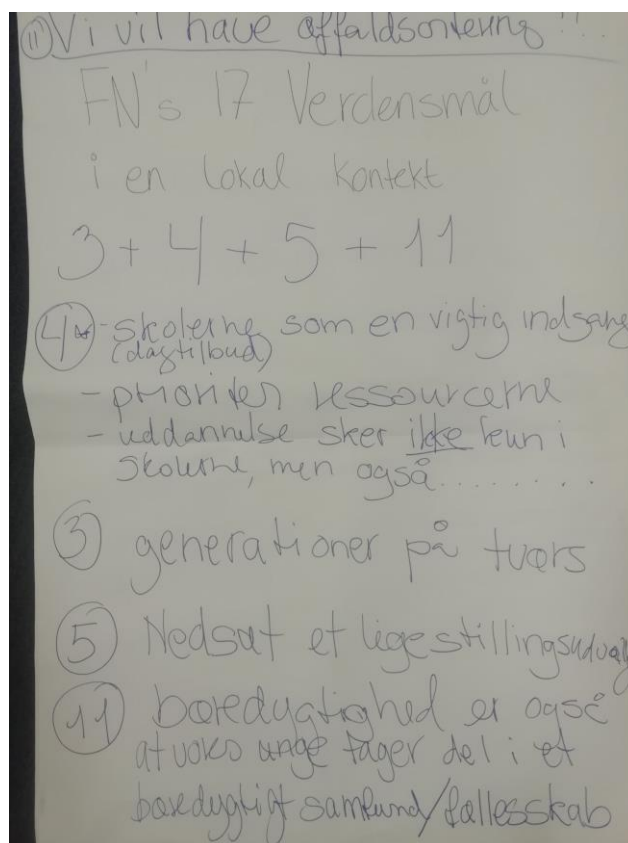 11 Vi vil have affaldsortering !!..
FN's 17 Verdensmål
i en lokal kontekt
3 + 4 + 5 + 11
4 - skolerne som en vigtig indgang
(dagtilbud)
- prioriter ressourcerne
- uddannelse sker ikke kun i
skolerne, men også.........
3 generationer på tværs
5 Nedsat et ligestillingsudvalg
11 bæredygtighed er også
at unge tager del i et
bæredygtigt samfund/fællesskab